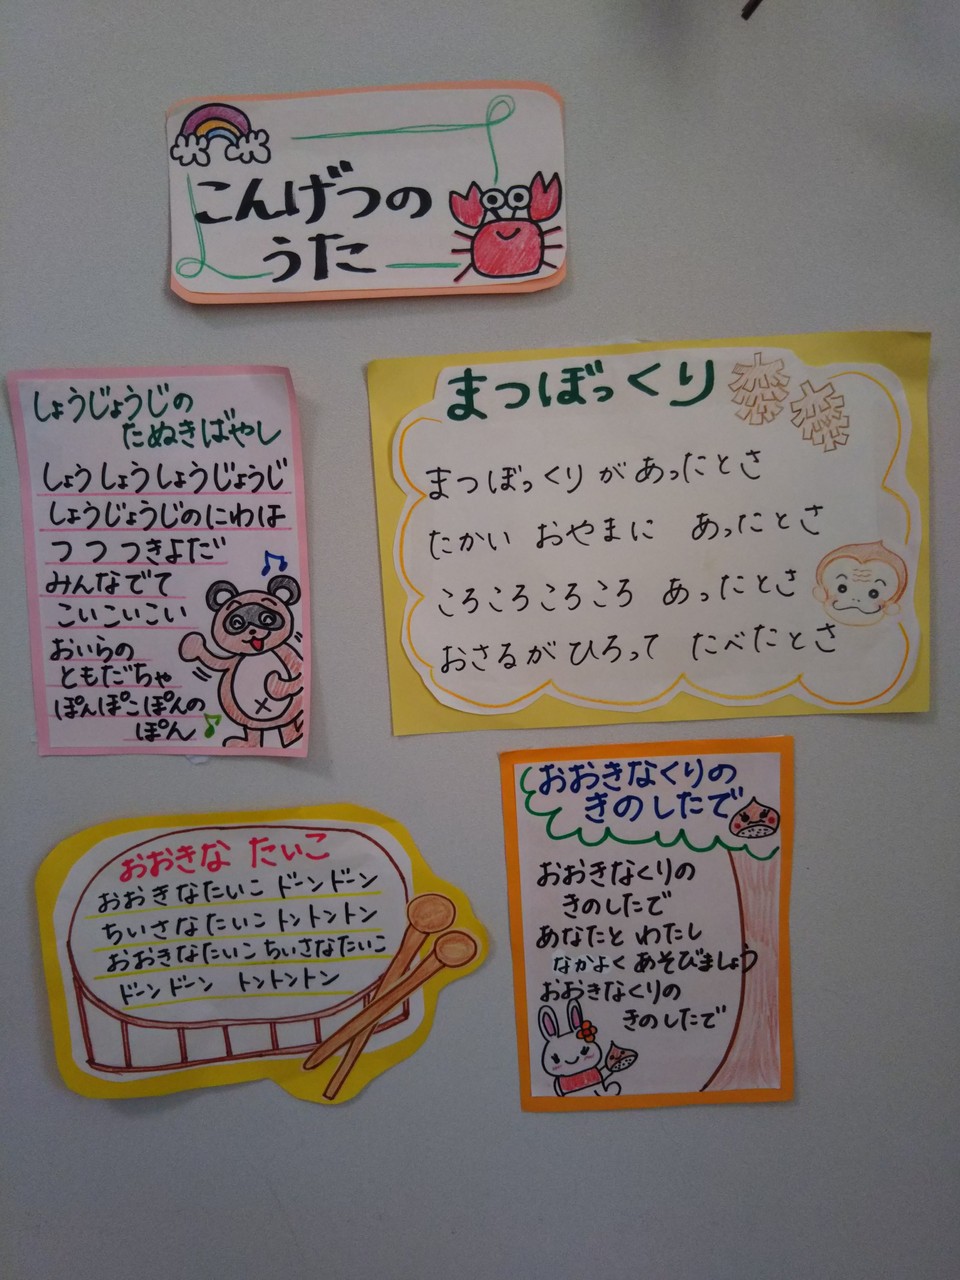 こんげつの
うた
しょうじょうじの
たぬきばやし
しょうしょうしょうじょうじ
しょうじょうじのにわは
つつつきよだ
みんなでて
こいこいこい
おいらの
ともだちゃ
ぽんぽこぽんの
ぽん
まつぼっくり
まつぼっくりがあったとさ
たかい おやまに あったとさ
ころころころころ あったとさ
おさるが ひろって たべたとさ
おおきな たいこ
おおきなたいこ ドーンドーン
ちいさなたいこ トントントン
おおきなたいこ ちいさなたいこ
ドーンドーン トントントン
おおきなくりの
きのしたで
おおきなくりの
きのしたで
あなたと わたし
なかよく あそびましょう
おおきなくりの
きのしたで